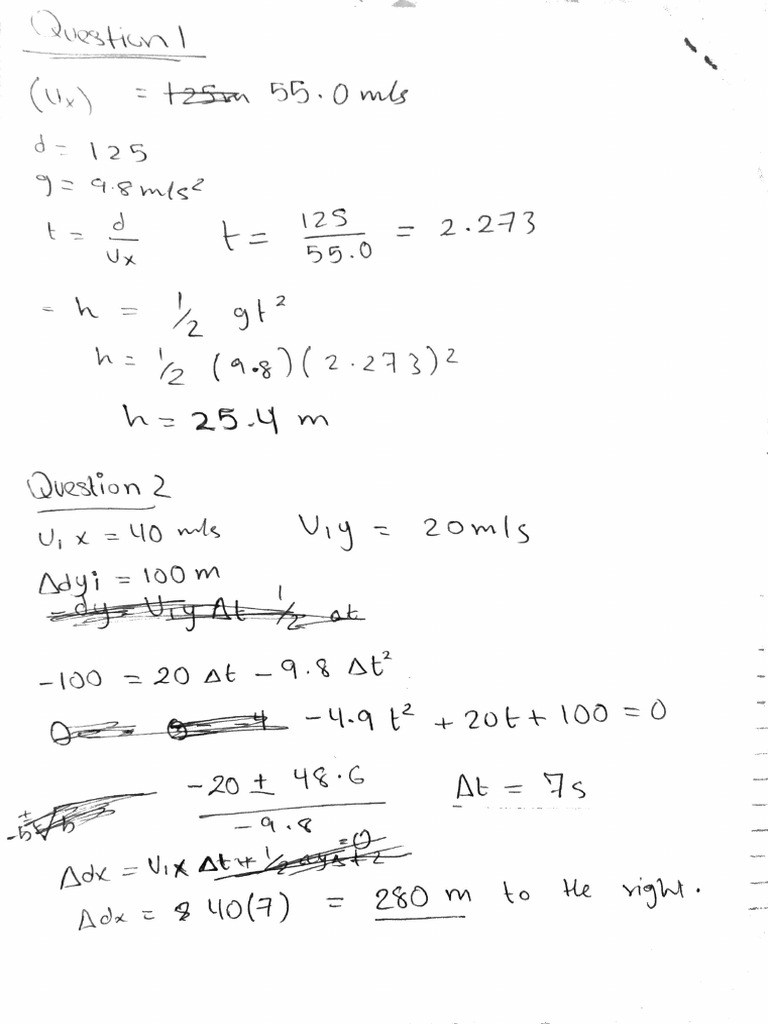 Question 1
(Ux) = 55.0 m/s
d = 125
g = 9.8 m/s²
t = d/Ux t = 125/55.0 = 2.273
= h = 1/2 gt²
h = 1/2 (9.8)(2.273)²
h = 25.4 m
Question 2
U₁x = 40 m/s U₁y = 20 m/s
Δdyi = 100 m
-dy = U₁y Δt 1/2 at
-100 = 20 Δt - 9.8 Δt²
-4.9 t² + 20t + 100 = 0
-20 ± 48.6 / -9.8 Δt = 7s
Δdx = U₁x Δt
Δdx = 40(7) = 280 m to the right.